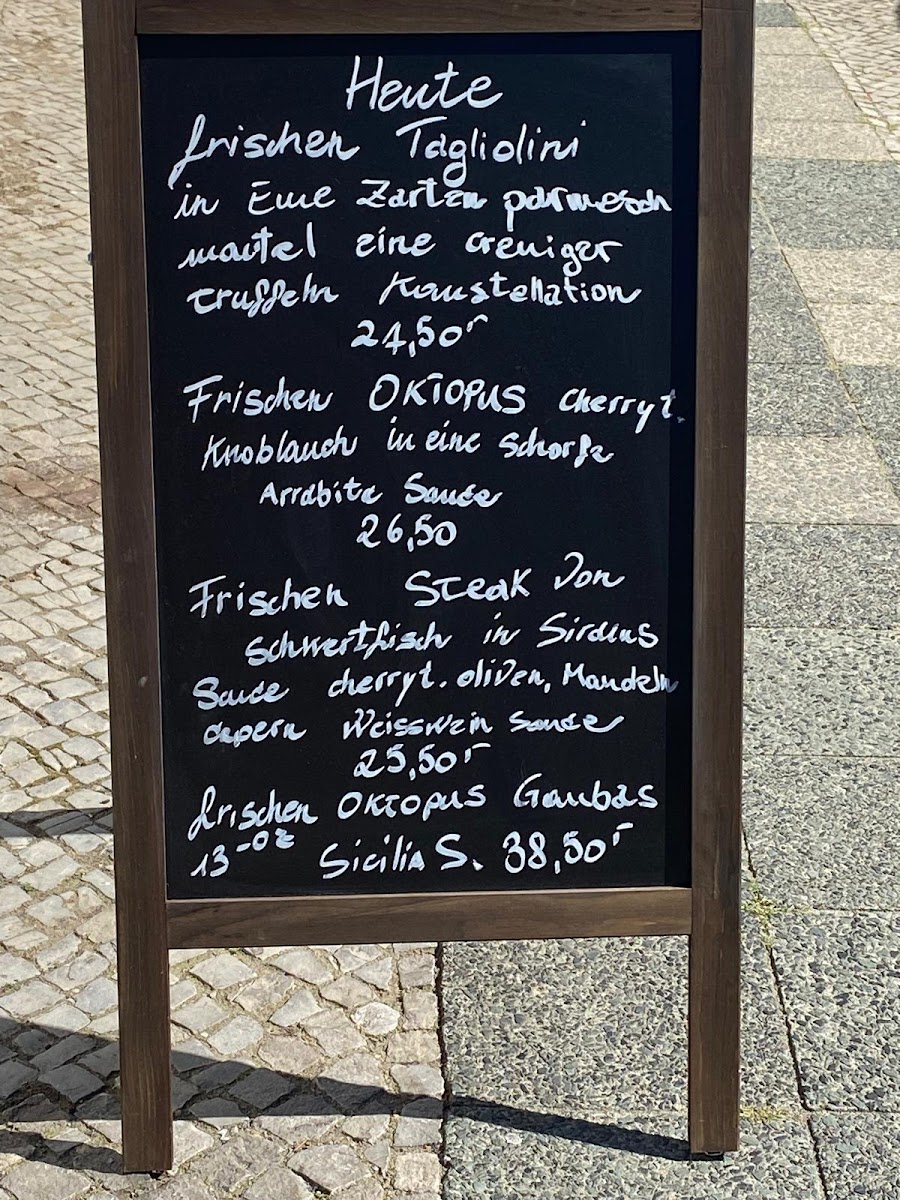 Heute
frischen Tagliolini
in Eine Zarten parmesan
mantel eine cremiger
truffeln Konstellation
24,50
Frischen OKTOPUS cherryt.
Knoblauch in eine scharfe
Arrabita Sauce
26,50
Frischen Steak von
Schwertfisch in Sirdens
Sauce cherryt. oliven, Mandeln
capern Weisswein sauce
25,50
frischen OKTOPUS Gambas
13-02 Sicilia S. 38,50